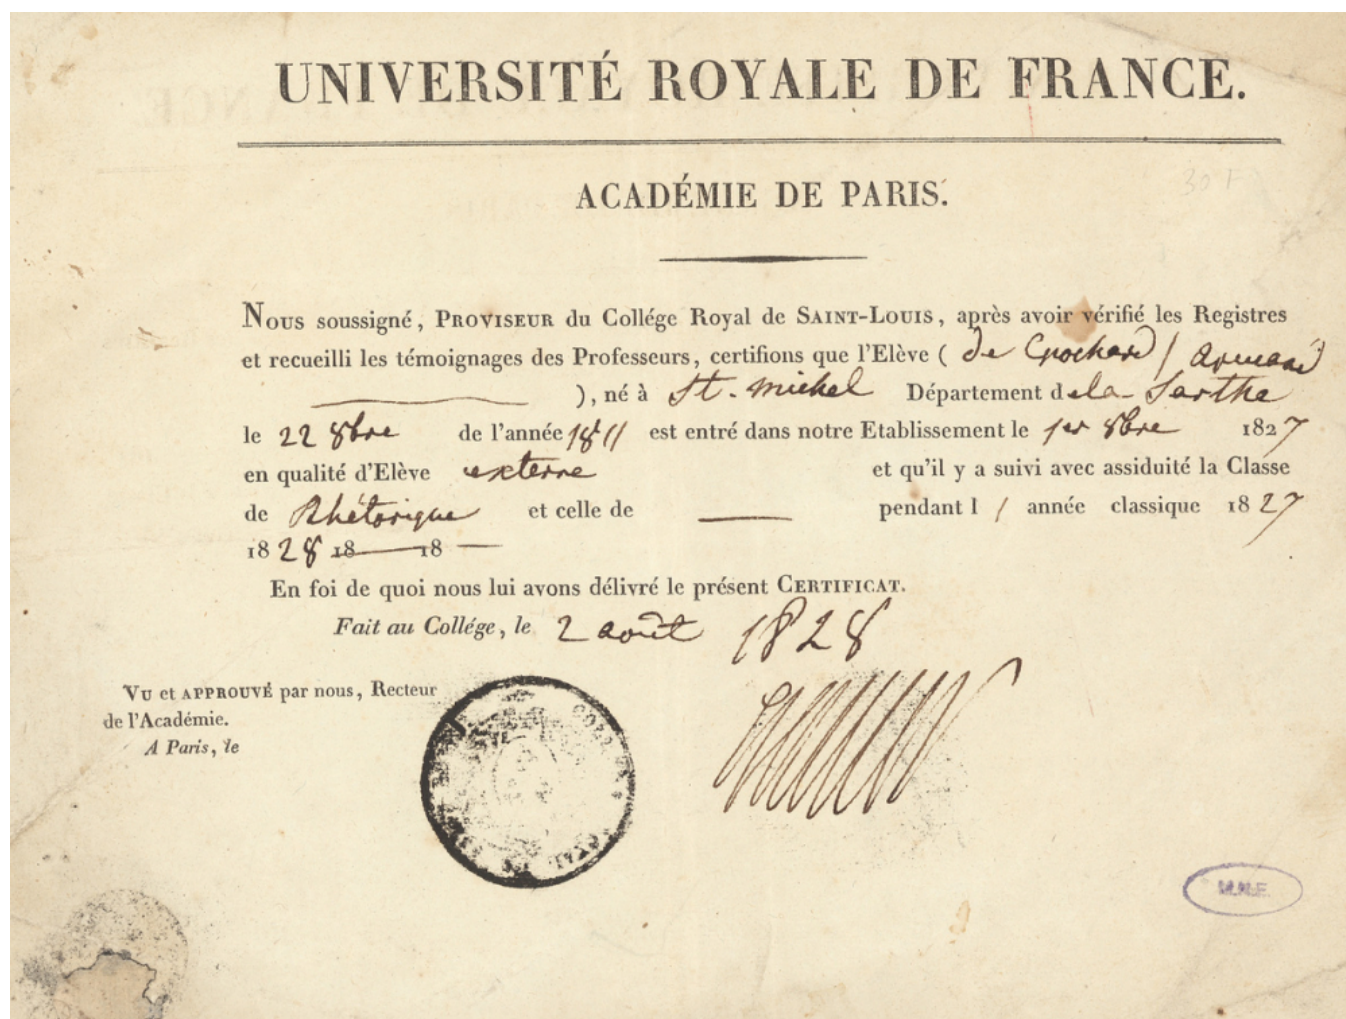 UNIVERSITÉ ROYALE DE FRANCE.
ACADÉMIE DE PARIS.
30 F
Nous soussigné, PROVISEUR du Collége Royal de SAINT-LOUIS, après avoir vérifié les Registres
et recueilli les témoignages des Professeurs, certifions que l'Elève ( de Crochard / armand
), né à St. michel Département de la Sarthe
le 22 8bre de l'année 1811 est entré dans notre Etablissement le 1er 8bre 1827
en qualité d'Elève externe et qu'il y a suivi avec assiduité la Classe
de Rhétorique et celle de — pendant l / année classique 1827
1828 18 — 18 —
En foi de quoi nous lui avons délivré le présent CERTIFICAT.
Fait au Collége, le 2 août 1828
VU et APPROUVÉ par nous, Recteur
de l'Académie.
A Paris, le
M.N.E.